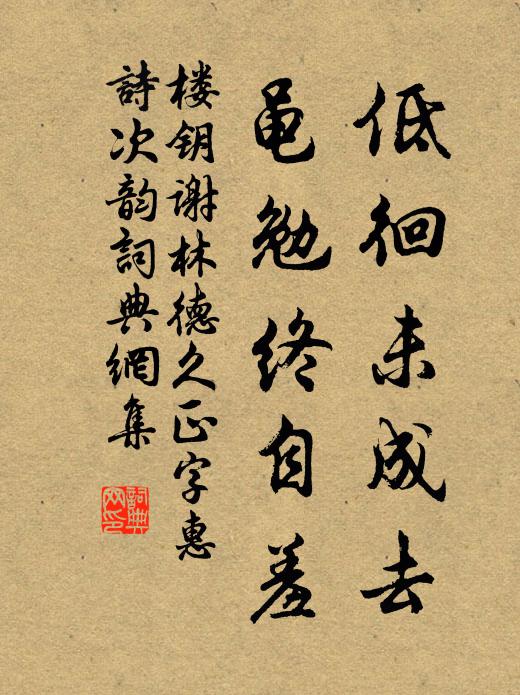 低徊未成去
黾勉终自羞
楼钥谢林德久正字惠
詩次韵詞典網集
詞典網印